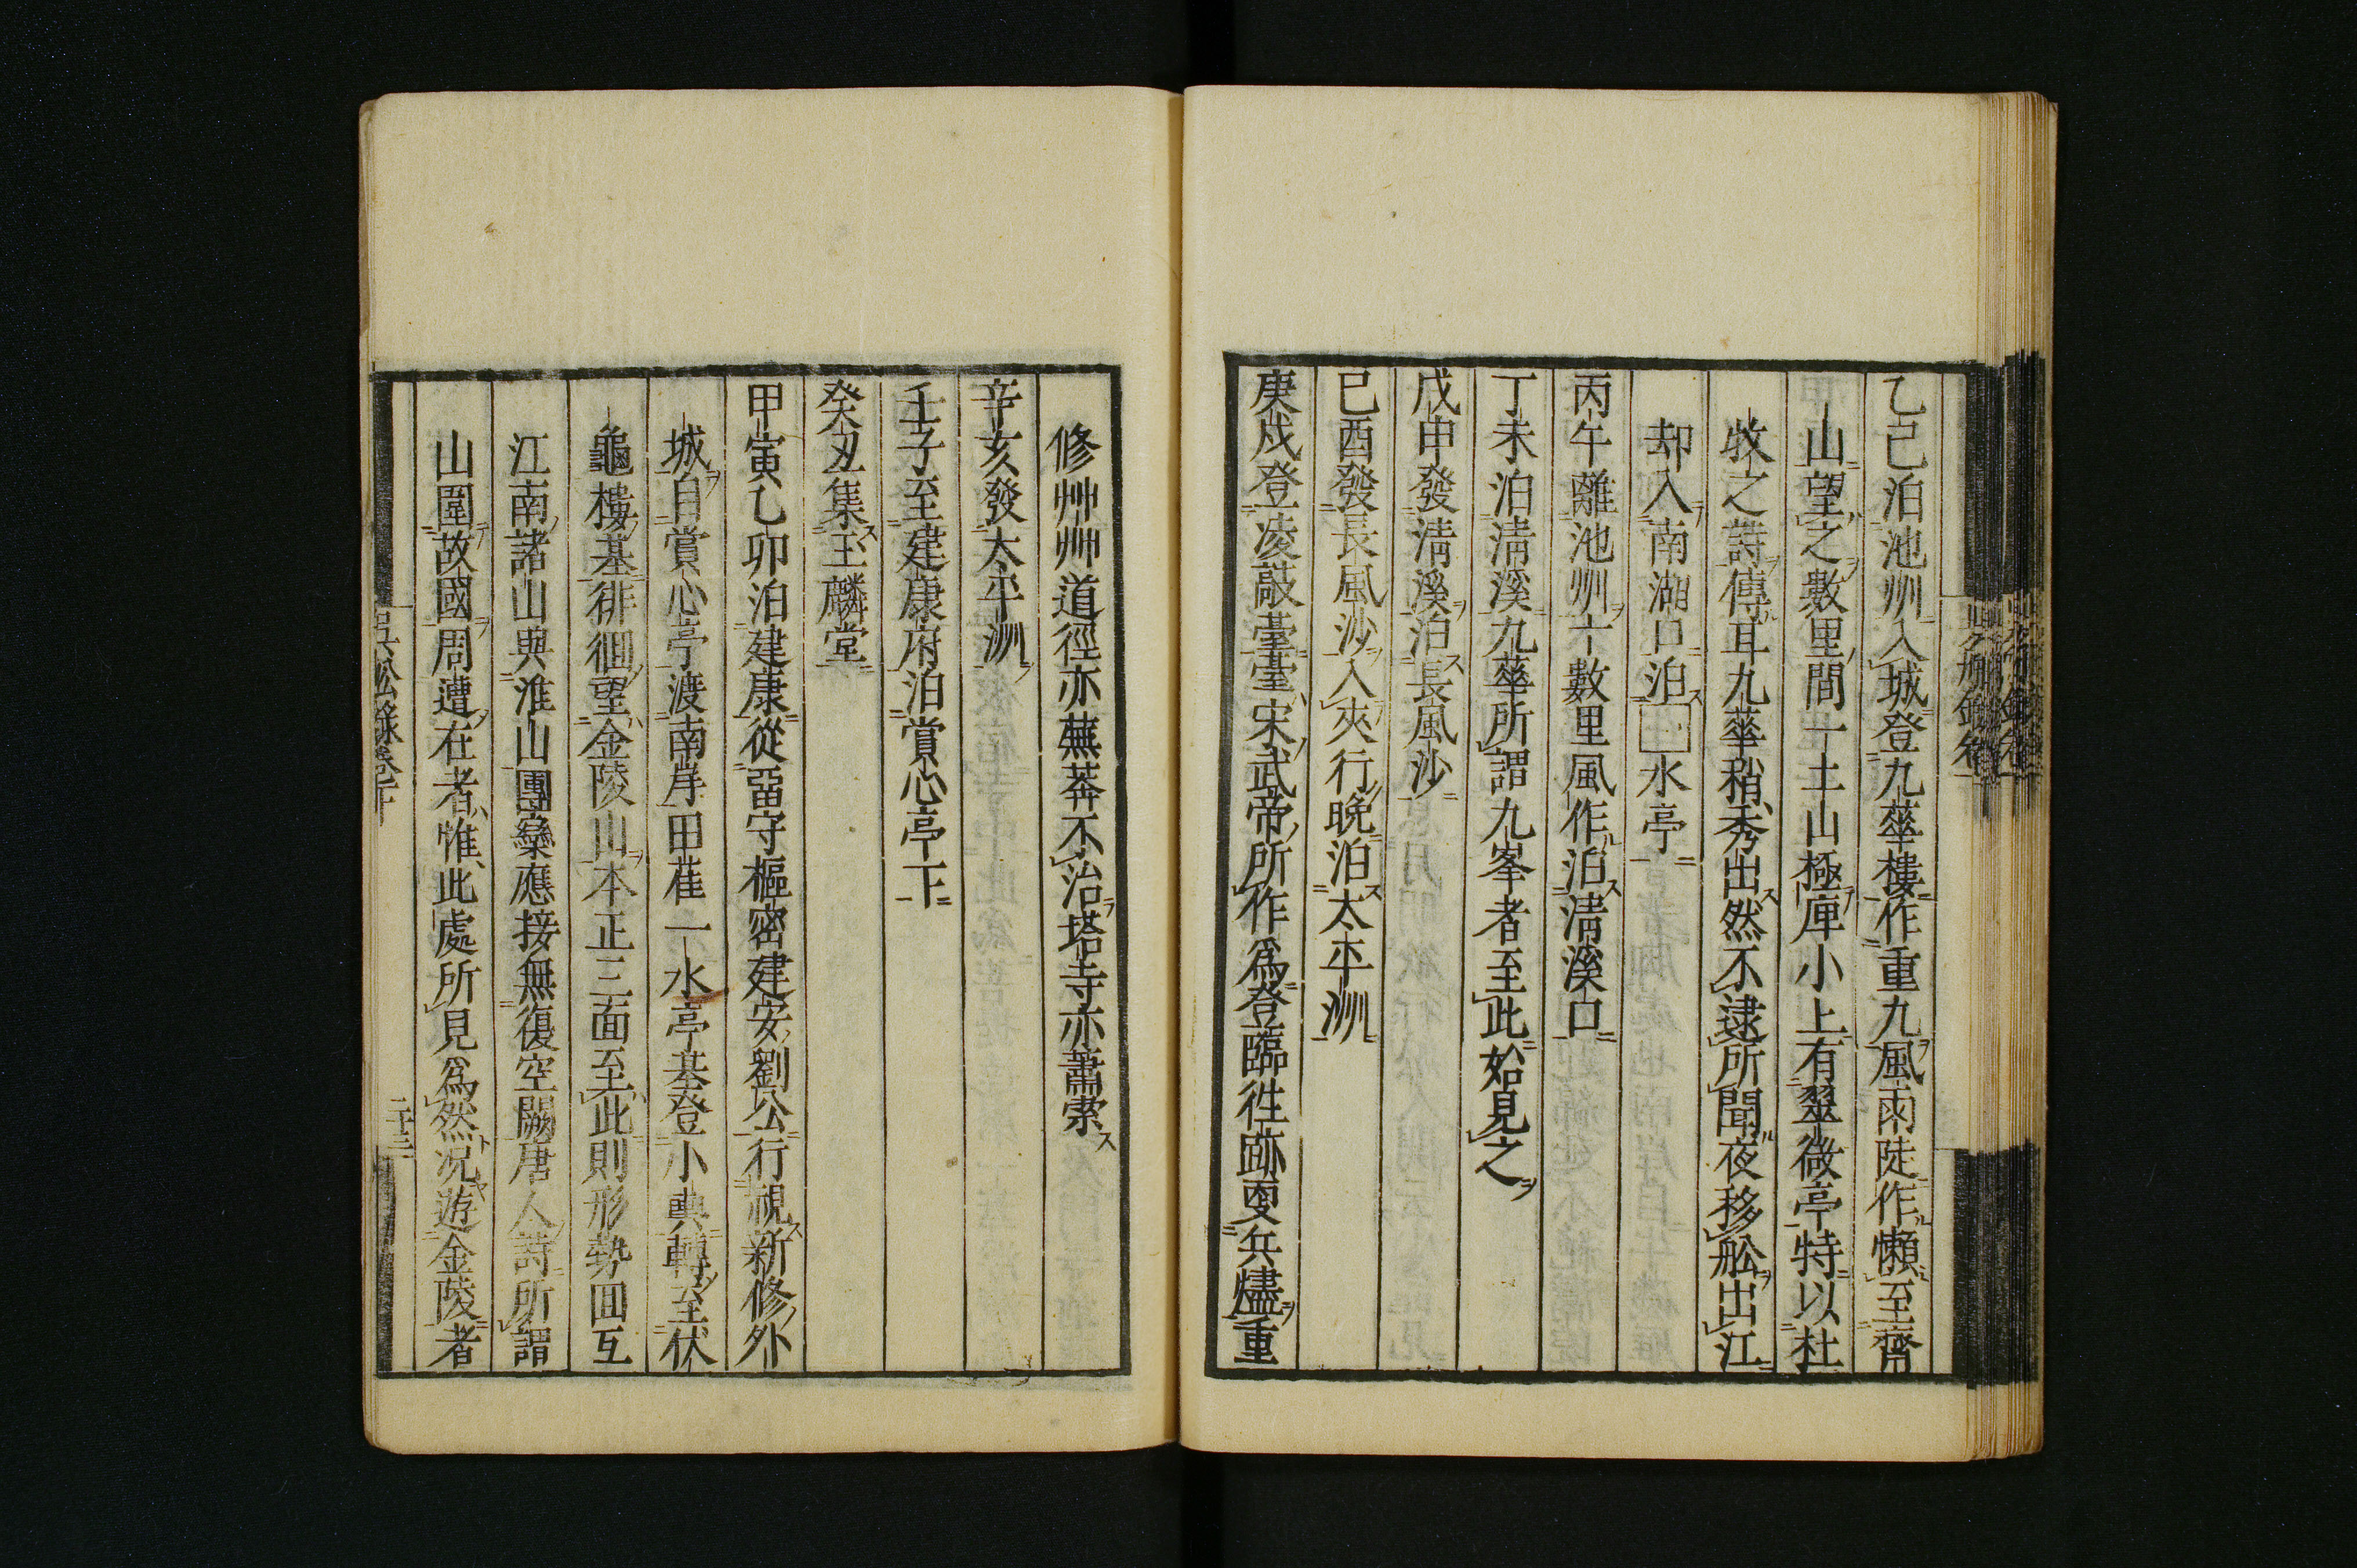 乙己泊池州入城登九華樓作重九風雨陡作懶至齊
山望之數里間一土山極庳小上有翠微亭特以杜
牧之詩傳耳九華稍秀出然不逮所聞夜移舩出江
却入南湖口泊□水亭
丙午離池州六數里風作泊淸溪口
丁未泊淸溪九華所謂九峯者至此始見之
戊申發淸溪泊長風沙
己酉發長風沙入夾行晚泊太平洲
庚戍登凌敲臺臺宋武帝所作爲登臨徃跡更兵燼重
修艸艸道徑亦蕪莽不治塔寺亦蕭索
辛亥發太平洲
壬子至建康府泊賞心亭下
癸丑集玉麟堂
甲寅乙卯泊建康從畱守樞密建安劉公行視新修外
城自賞心亭渡南岸田萑一水亭基登小輿轉至伏
龜樓基徘徊望金陵山本正三面至此則形勢回互
江南諸山與淮山團欒應接無復空闕唐人詩所謂
山圍故國周遭在者惟此處所見爲然况遊金陵者
吳舩錄卷下
二十三